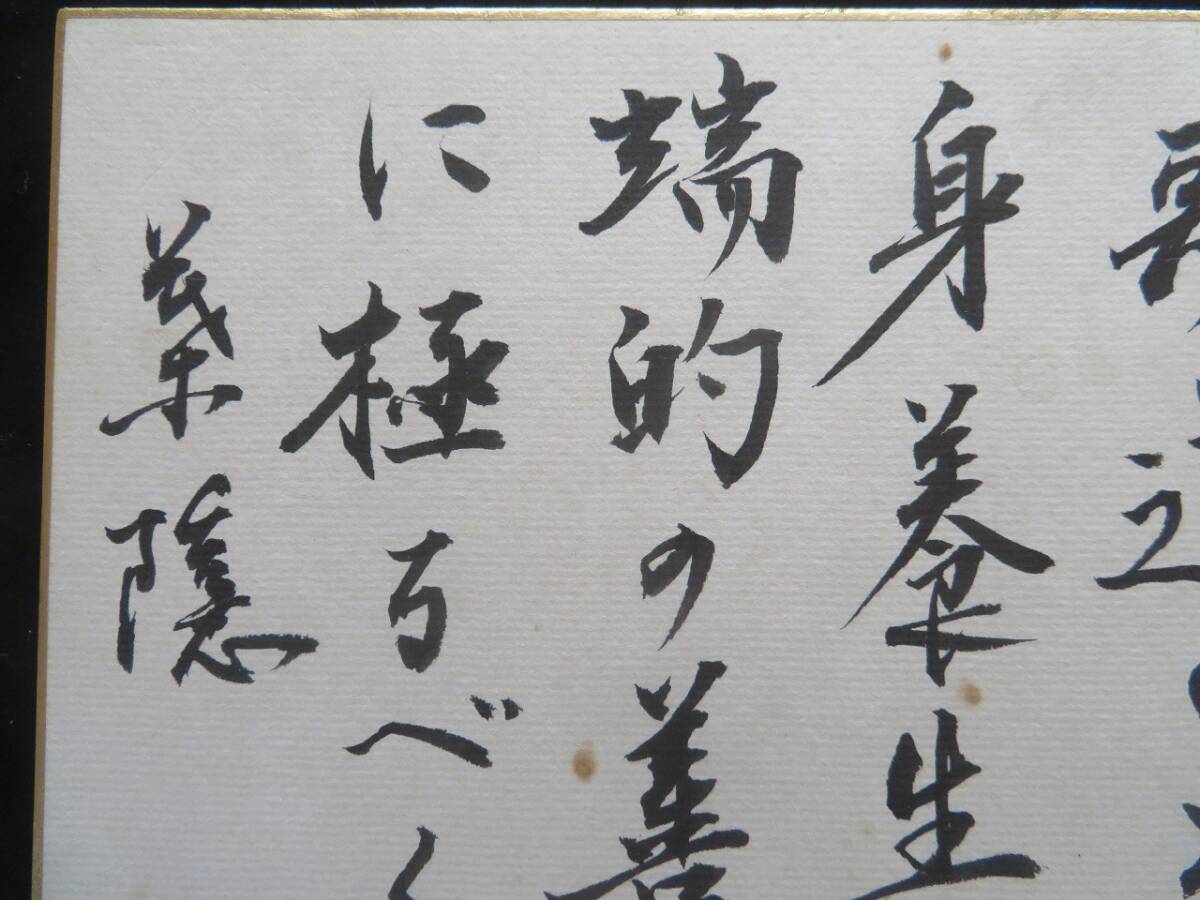 身養生
端的の善
に極るべく
葉隠